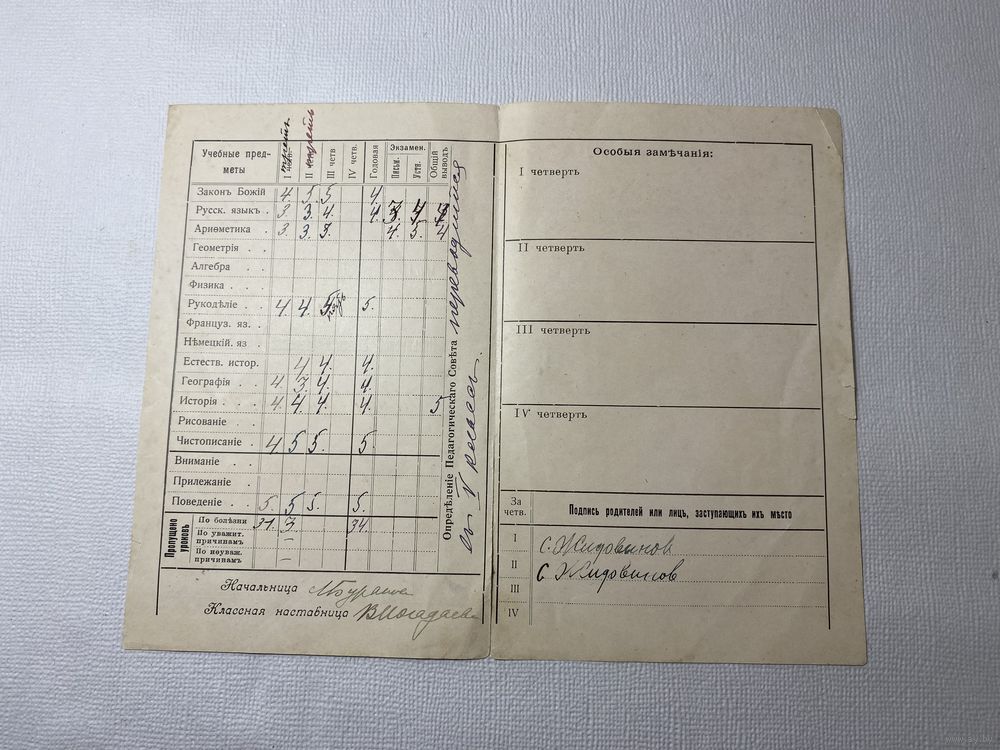 Учебные пред-
меты
I треть
II треть
III четв
IV четв.
Годовая
Экзамен.
Письм.
Устн.
Общій
выводъ
Законъ Божій 4. 5. 5 4.
Русск. языкъ . 3 3. 4. 4 3. 4
Ариѳметика . 3. 3. 3. 4. 5. 4
Геометрія . .
Алгебра . .
Физика . .
Рукодѣліе . . 4. 4. 5 5.
Француз. яз. .
Нѣмецкій. яз .
Естеств. истор. 4 4. 4.
Географія . . 4. 3. 4. 4.
Исторія . . . 4. 4. 4. 4. 5
Рисованіе . .
Чистописаніе . 4 5 5. 5.
Вниманіе . .
Прилежаніе .
Поведеніе . . 5. 5 5. 5.
Пропущено
уроковъ
По болѣзни 31. 3. 34.
По уважит.
причинамъ –
По неуваж.
причинамъ. –
Опредѣленіе Педагогическаго Совѣта переводится
въ V классъ.
Начальница
Классная наставница
Особыя замѣчанія:
I четверть
II четверть
III четверть
IV четверть
За
четв.
Подпись родителей или лицъ, заступающихъ ихъ мѣсто
I С. Жидовинов
II С Жидовинов
III
IV